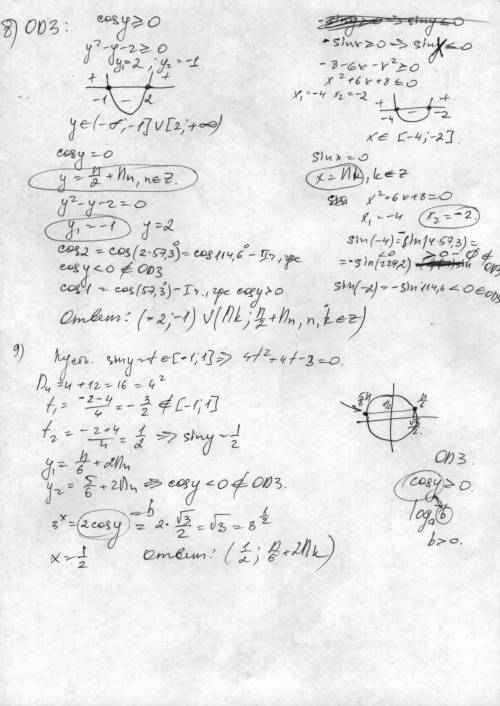 8) ОДЗ:
cosy ≥ 0
y²-y-2 ≥ 0
y₁=2; y₂=-1
+ +
-1 - 2
y∈(-∞;-1]∪[2;+∞)
cosy = 0
y = π/2 + πn, n∈Z.
y²-y-2=0
y₁=-1 y=2
cos2 = cos(2·57,3°) = cos114,6° - IIч, где
cosy<0 ∉ ОДЗ
cos1 = cos(57,3°) - Iч, где cosy>0
-siny≥0 ⇒ siny≤0
-sinx≥0 ⇒ sinx≤0
-8-6x-x²≥0
x²+6x+8≤0
x₁=-4 x₂=-2
+ +
-4 - -2
x∈[-4;-2].
sinx=0
x=πk, k∈Z
x²+6x+8=0
x₁=-4 x₂=-2.
sin(-4)=-sin(4·57,3)=
=-sin(229,2) >0 - ∉ ОДЗ
sin(-2)=-sin114,6<0 ∈ОДЗ
Ответ: (-2;-1)∪(πk; π/2+πn, n,k∈Z)
9) Пусть siny=t∈[-1;1] ⇒ 4t²+4t-3=0.
D₄=4+12=16=4²
t₁= (-2-4)/4 = -3/2 ∉[-1;1]
t₂= (-2+4)/4 = 1/2 ⇒ siny=1/2
y₁=π/6+2πn
y₂=5/6+2πn ⇒ cosy<0 ∉ ОДЗ.
3ˣ=2cosy = 2·√3/2=√3=3^(1/2)
b
x=1/2 Ответ: (1/2; π/6+2πk)
5π/6 π/6
√3/2
ОДЗ.
cosy>0.
logₐb
b>0.